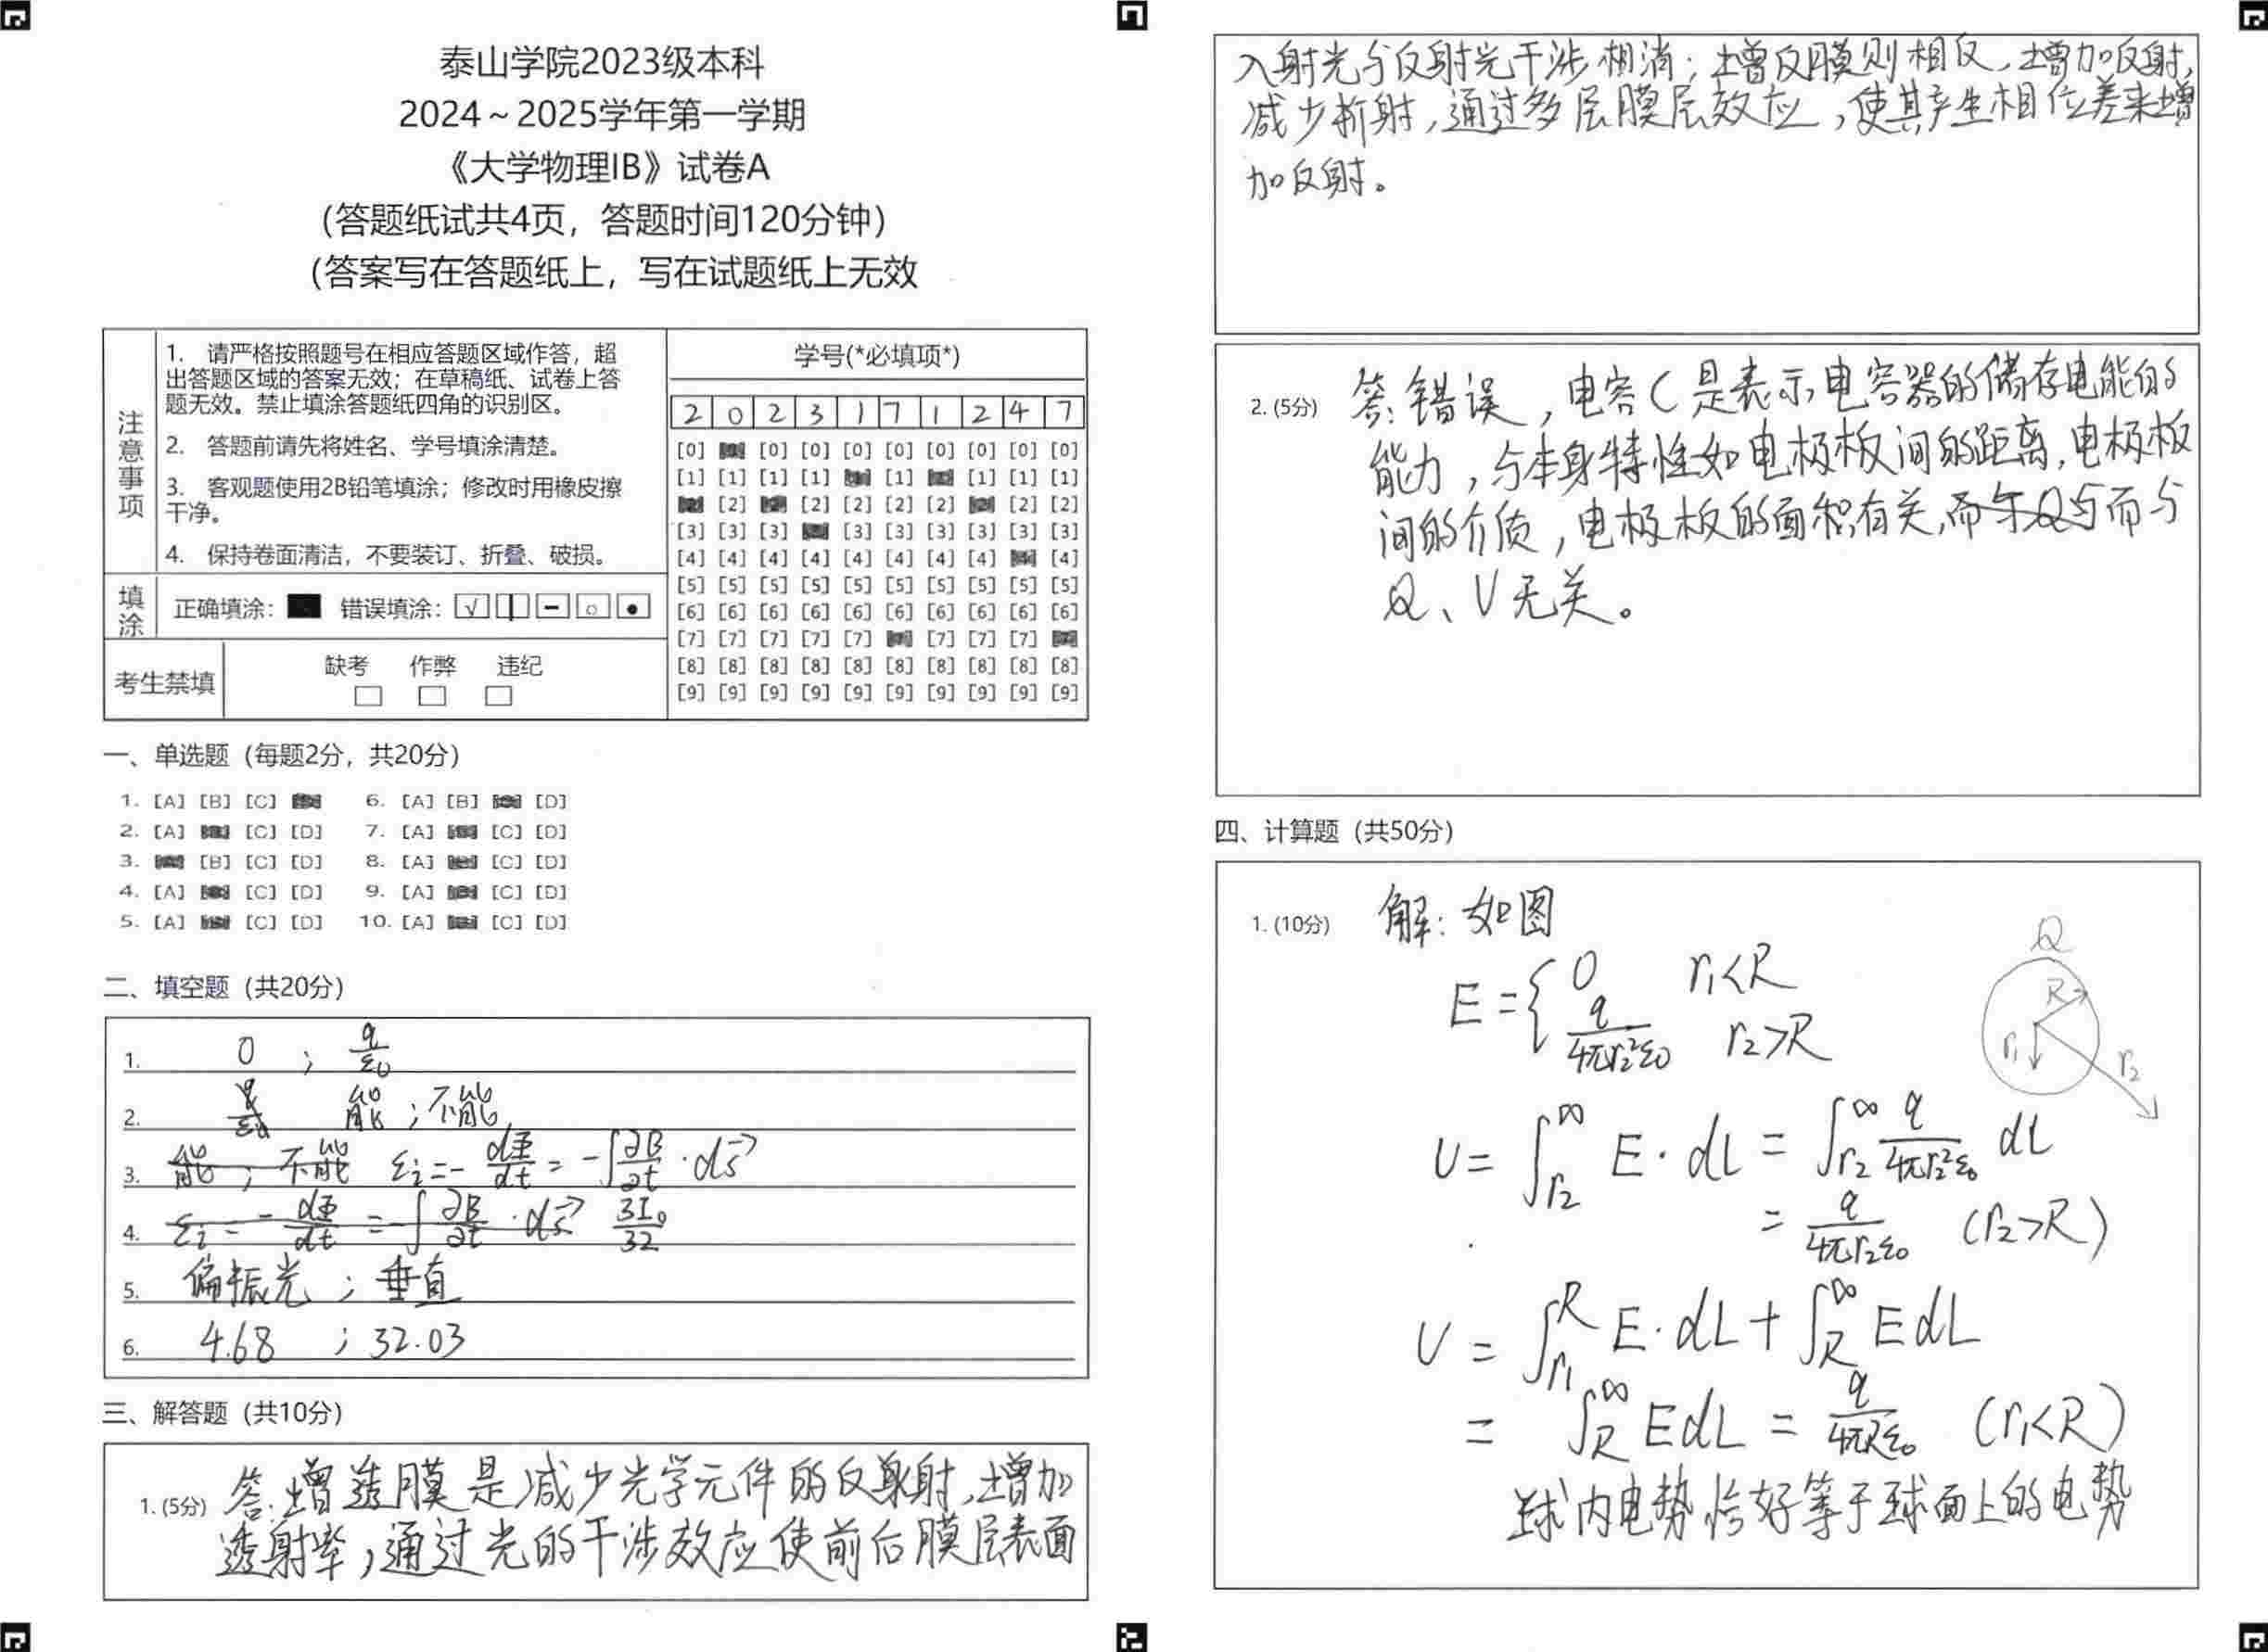 泰山学院2023级本科
2024～2025学年第一学期
《大学物理IB》试卷A
（答题纸试共4页，答题时间120分钟）
（答案写在答题纸上，写在试题纸上无效
注意事项
1. 请严格按照题号在相应答题区域作答，超
出答题区域的答案无效；在草稿纸、试卷上答
题无效。禁止填涂答题纸四角的识别区。
2. 答题前请先将姓名、学号填涂清楚。
3. 客观题使用2B铅笔填涂；修改时用橡皮擦
干净。
4. 保持卷面清洁，不要装订、折叠、破损。
填涂
正确填涂： 错误填涂：
考生禁填
缺考 作弊 违纪
学号(*必填项*)
2 0 2 3 1 7 1 2 4 7
[0] [0] [0] [0] [0] [0] [0] [0] [0]
[1] [1] [1] [1] [1] [1] [1] [1]
[2] [2] [2] [2] [2] [2] [2]
[3] [3] [3] [3] [3] [3] [3] [3] [3]
[4] [4] [4] [4] [4] [4] [4] [4] [4]
[5] [5] [5] [5] [5] [5] [5] [5] [5] [5]
[6] [6] [6] [6] [6] [6] [6] [6] [6] [6]
[7] [7] [7] [7] [7] [7] [7] [7]
[8] [8] [8] [8] [8] [8] [8] [8] [8] [8]
[9] [9] [9] [9] [9] [9] [9] [9] [9] [9]
一、单选题（每题2分，共20分）
1. [A] [B] [C] 6. [A] [B] [D]
2. [A] [C] [D] 7. [A] [C] [D]
3. [B] [C] [D] 8. [A] [C] [D]
4. [A] [C] [D] 9. [A] [C] [D]
5. [A] [C] [D] 10. [A] [C] [D]
二、填空题（共20分）
1. 0 ; q/ε0
2. 能 ; 不能
3. 能 ; 不能 εi = - dΦ/dt = -∫ ∂B/∂t · ds→
4. εi = - dΦ/dt = -∫ ∂B/∂t · ds→ 3I0/32
5. 偏振光 ; 垂直
6. 4.68 ; 32.03
三、解答题（共10分）
1. (5分) 答:增透膜是减少光学元件的反射,增加
透射率,通过光的干涉效应使前后膜层表面
入射光与反射光干涉相消;增反膜则相反,增加反射,
减少折射,通过多层膜层效应,使其产生相位差来增
加反射。
2. (5分) 答:错误,电容C是表示电容器的储存电能的
能力,与本身特性如电极板间的距离,电极板
间的介质,电极板的面积有关,而与Q与而与
Q、U无关。
四、计算题（共50分）
1. (10分) 解:如图
E = { 0 r1<R
q/4πr2²ε0 r2>R
Q
R
r1
r2
U = ∫r2^∞ E·dL = ∫r2^∞ q/4πr2²ε0 dL
= q/4πr2ε0 (r2>R)
U = ∫r1^R E·dL + ∫R^∞ EdL
= ∫R^∞ EdL = q/4πRε0 (r1<R)
球内电势恰好等于球面上的电势